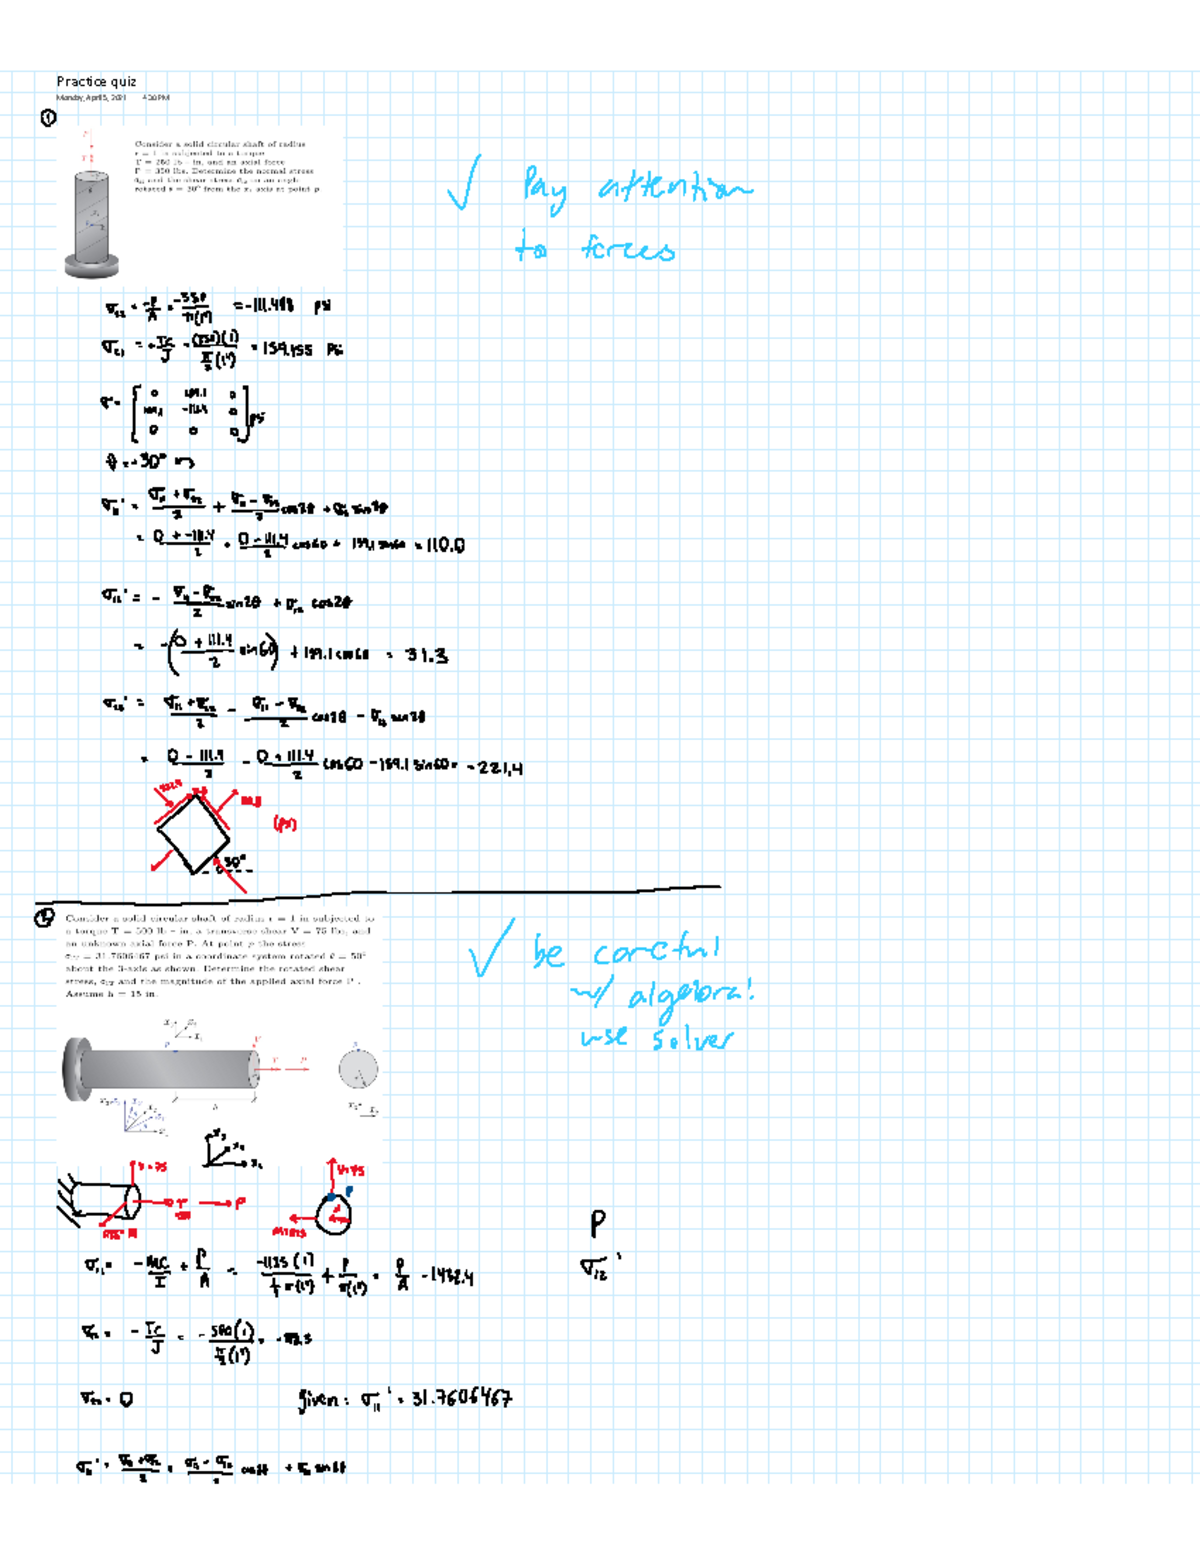 Practice quiz
Monday, April 5, 2021 4:30 PM
①
Consider a solid circular shaft of radius
r = 1 is subjected to a torque
T = 250 lb - in, and an axial force
P = 350 lbs. Determine the normal stress
and the shear stress
rotated = 30° from the x₁ axis at point p
✓ Pay attention
to forces
= -P/A = = -111.408 psi
= Tc/J = (250)(1) / π/2(1⁴) = 159.155 psi
σ = [0 159.1 0
159.1 -111.4 0
0 0 0] psi
θ = 30°
σ₁₁' = (σ₁₁ + σ₂₂)/2 + (σ₁₁ - σ₂₂)/2 cos2θ + σ₁₂ sin2θ
= (0 + -111.4)/2 + (0 - -111.4)/2 cos60 + 159.1 sin60 = 110.0
σ₁₂' = - (σ₁₁ - σ₂₂)/2 sin2θ + σ₁₂ cos2θ
= -((0 + 111.4)/2 sin60) + 159.1 cos60 = 31.3
σ₂₂' = (σ₁₁ + σ₂₂)/2 - (σ₁₁ - σ₂₂)/2 cos2θ - σ₁₂ sin2θ
= (0 - 111.4)/2 - (0 + 111.4)/2 cos60 - 159.1 sin60 = -221.4
(psi)
30°
②
Consider a solid circular shaft of radius r = 1 in subjected to
a torque T = 500 lb - in, a transverse shear V = 75 lbs, and
an unknown axial force P. At point p the stress
= 31.7606467 psi in a coordinate system rotated θ = 50°
about the 3-axis as shown. Determine the rotated shear
stress, σ₁₂' and the magnitude of the applied axial force P.
Assume h = 15 in.
✓ be careful
w/ algebra!
use solver
V = 75
T
P
V=75
P
P
σ₁₂'
σ₁₁ = -Mc/I + P/A = -1125(1) / ¼π(1⁴) + P/π(1²) = P/A - 1432.4
σ₁₂ = -Tc/J = -500(1) / π/2(1⁴) =
σ₂₂ = 0 given: σ₁₁' = 31.7606467
σ₁₁' = (σ₁₁ + σ₂₂)/2 + (σ₁₁ - σ₂₂)/2 cos2θ + σ₁₂ sin2θ